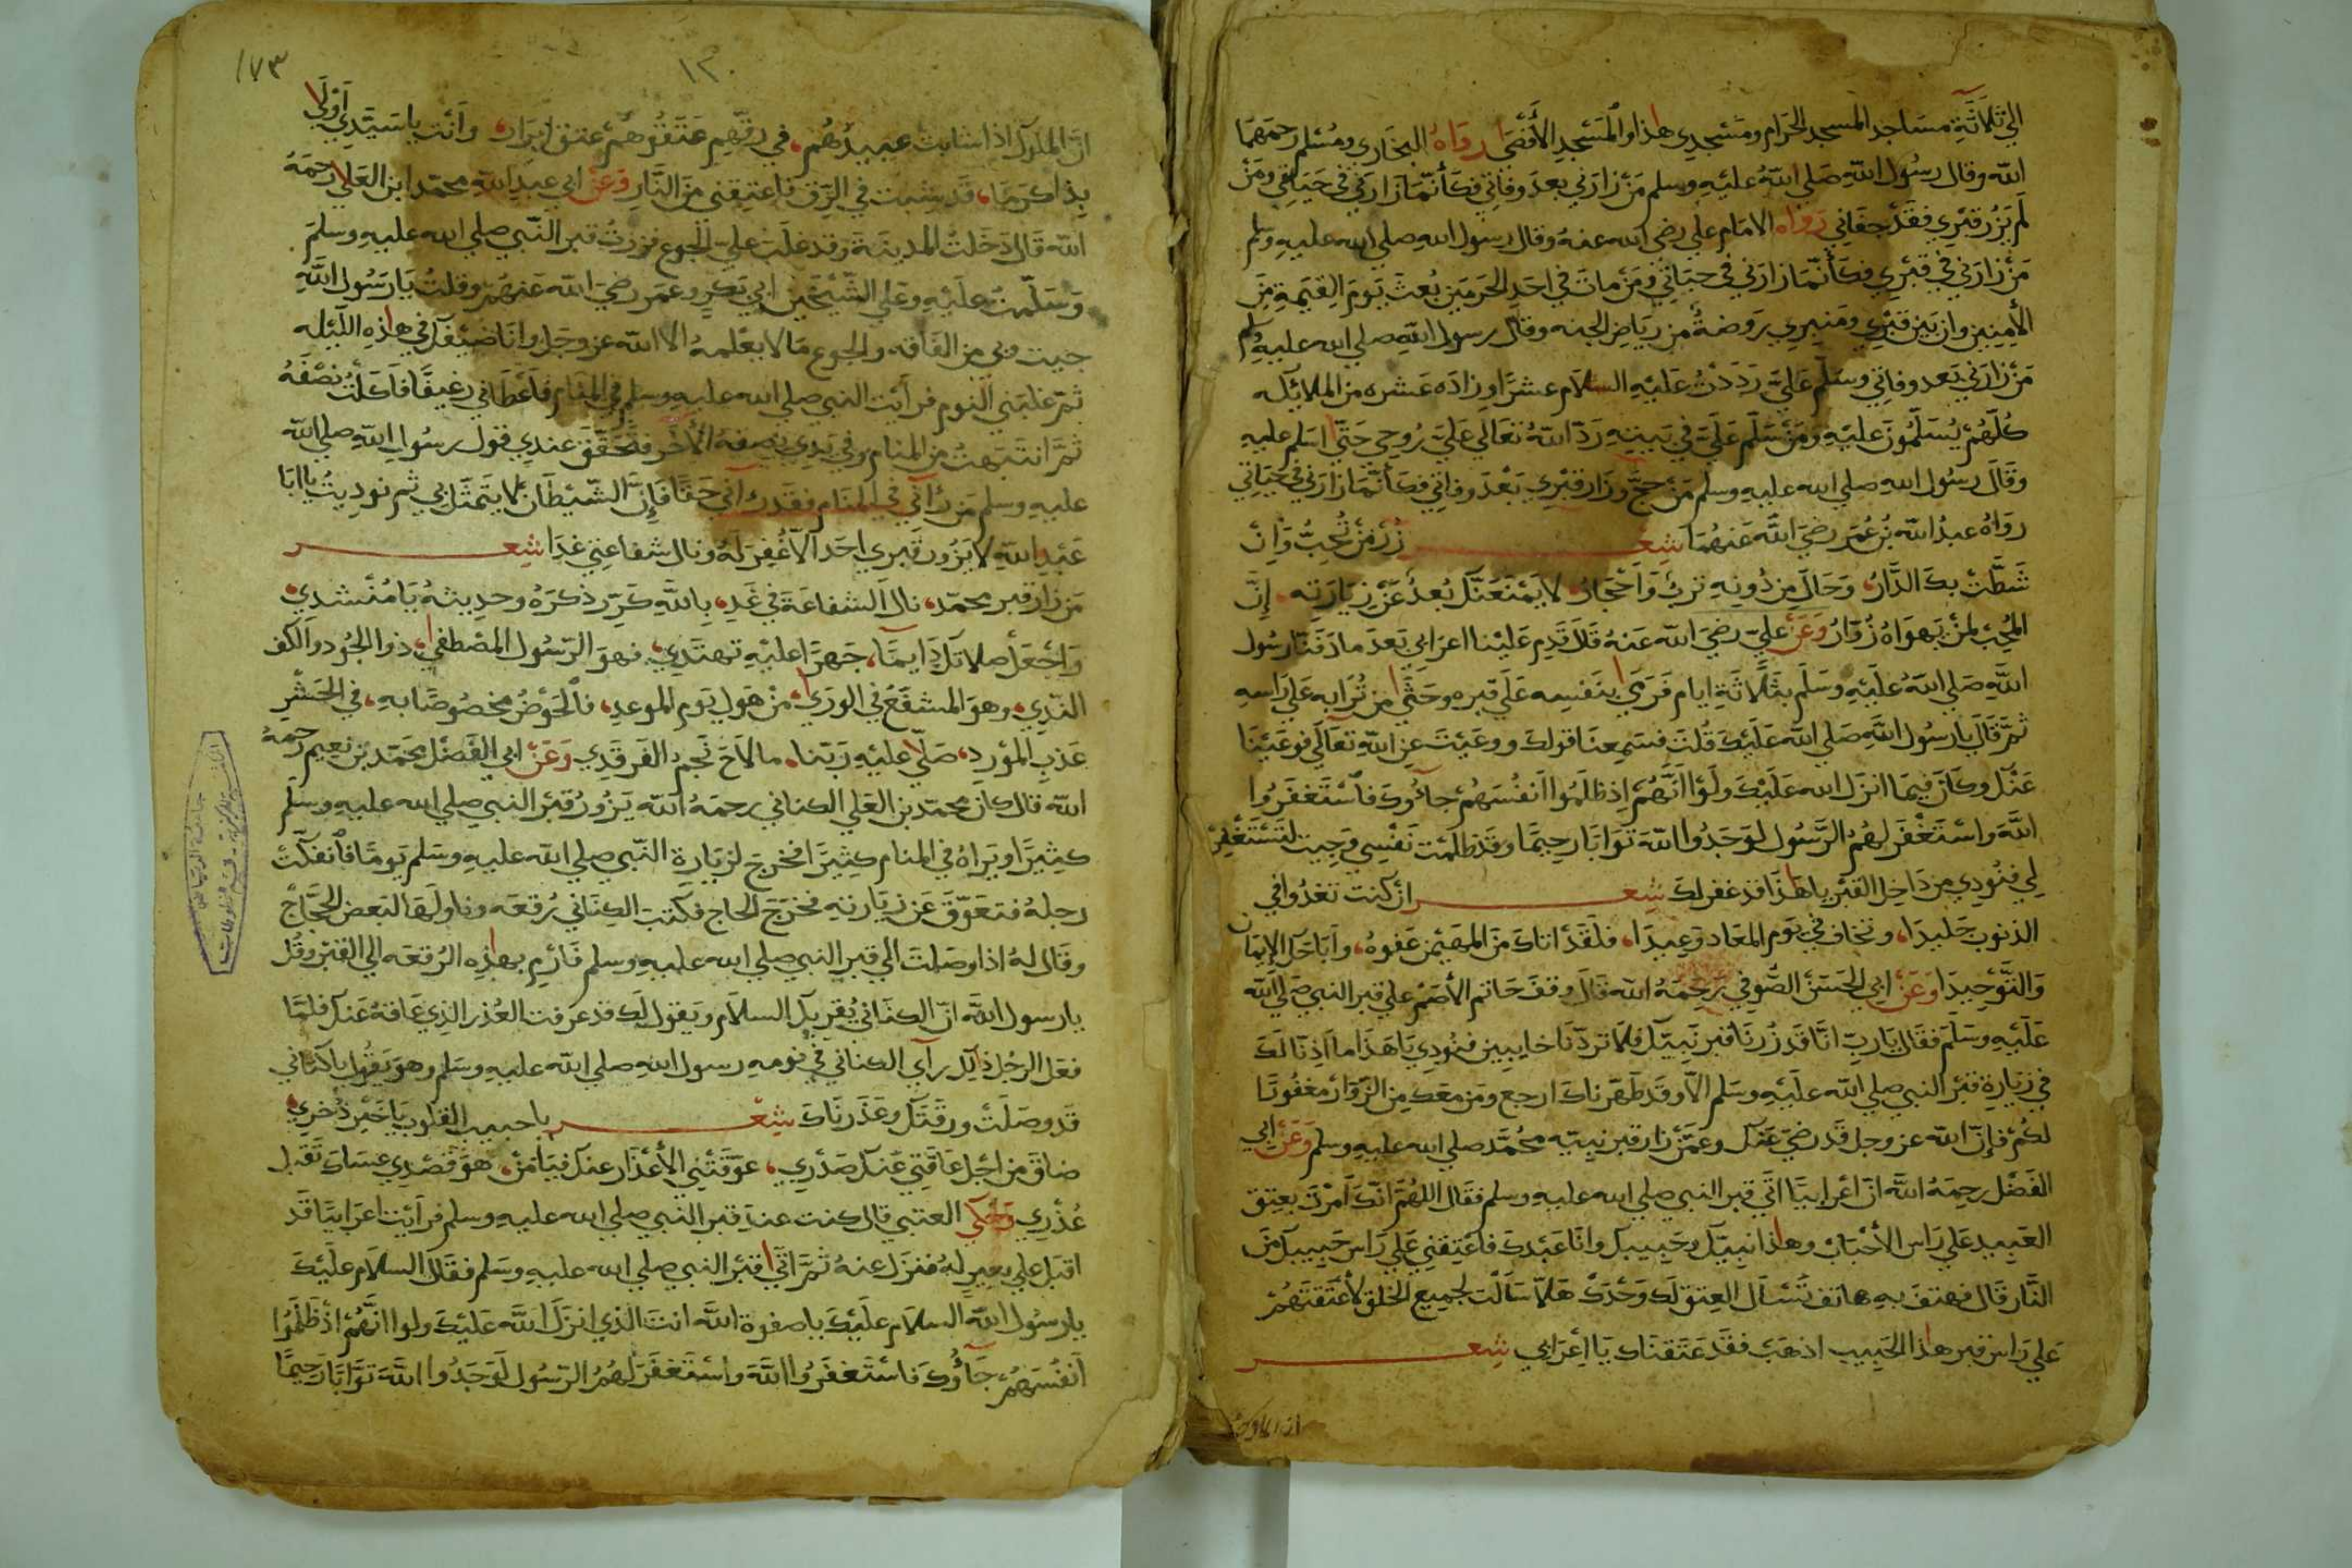 الي ثلاثة مساجد المسجد الحرام ومسجدي هذا والمسجد الأقصى رواه البخاري ومسلم رحمهما
الله وقال رسول الله صلي الله عليه وسلم من زارني بعد وفاتي فكأنما زارني في حياتي ومن
لم يزر قبري فقد جفاني رواه الامام علي رضي الله عنه وقال رسول الله صلي الله عليه وسلم
من زارني في قبري فكأنما زارني في حياتي ومن مات في احد الحرمين بعث يوم القيمة من
الأمنين وان بين قبري ومنبري روضة من رياض الجنه وقال رسول الله صلي الله عليه وسلم
من زارني بعد وفاتي وسلم علي رددت عليه السلام عشرا وزاده عشره من الملائكه
كلهم يسلمون عليه ومن سلم علي في بيته رد الله تعالي علي روحي حتي اسلم عليه
وقال رسول الله صلي الله عليه وسلم من حج وزار قبري بعد وفاتي فكأنما زارني في حياتي
رواه عبد الله بن عمر رضي الله عنهما شعر زر من تحب وان
شطت بك الدار، وحال من دونه ترب واحجار، لا يمنعنك بعد عن زيارته، إن
المحب لمن يهواه زوار وعن علي رضي الله عنه قال قدم علينا اعرابي بعد ما دفنا رسول
الله صلي الله عليه وسلم بثلاثة ايام فرمي بنفسه علي قبره وحثي من ترابه علي راسه
ثم قال يا رسول الله صلي الله عليك قلت فسمعنا قولك ووعيت عن الله تعالي فوعينا
عنك وكان فيما انزل الله عليك ولو انهم إذ ظلموا انفسهم جآؤك فاستغفروا
الله واستغفر لهم الرسول لوجدوا الله توابا رحيما وقد ظلمت نفسي وجيت لتستغفر
لي فنودي من داخل القبر يا هذا قد غفر لك شعر ان كنت تغدوا في
الذنوب جليدا، وتخاف في يوم المعاد وعيدا، فلقد اتاك من المهيمن عفوه، واباحك الايمان
والتوحيدا وعن ابي الحسن الصوفي رحمه الله قال وقف حاتم الأصم علي قبر النبي صلي الله
عليه وسلم فقال يا رب انا قد زرنا قبر نبيك فلا تردنا خايبين فنودي يا هذا ما اذنا لك
في زيارة قبر النبي صلي الله عليه وسلم الا وقد طهرناك ارجع ومن معك من الزوار مغفورا
لكم فإن الله عز وجل قد رضي عنك وعمن زار قبر نبيه محمد صلي الله عليه وسلم وعن ابي
الفضل رحمه الله ان اعرابيا اتي قبر النبي صلي الله عليه وسلم فقال اللهم انك امرت بعتق
العبيد علي راس الأحباب وهذا نبيك وحبيبك وانا عبدك فاعتقني علي راس حبيبك من
النار قال فهتف به هاتف تسئال العتق لك وحدك هلا سالت لجميع الخلق لأعتقتهم
علي راس قبر هذا الحبيب اذهب فقد عتقناك يا اعرابي شعر
ان الملوك
١٧٣
١٢٠
ان الملوك اذا شابت عبيدهم، في رقهم عتقوهم عتق ابرار، وانت يا سيدي اولي
بذا كرما، قد شبت في الرق فاعتقني من النار وعن ابي عبد الله محمد ابن العلا رحمه
الله قال دخلت المدينة وقد غلب علي الجوع فزرت قبر النبي صلي الله عليه وسلم
وسلمت عليه وعلي الشيخين ابي بكر وعمر رضي الله عنهم وقلت يا رسول الله
جيت وبي من الفاقه والجوع ما لا يعلمه الا الله عز وجل وانا ضيفك في هذه الليله
ثم غلبني النوم فرأيت النبي صلي الله عليه وسلم في المنام فأعطاني رغيفا فاكلت نصفه
ثم انتبهت من المنام وفي يدي نصفه الأخر فتحقق عندي قول رسول الله صلي الله
عليه وسلم من رآني في المنام فقد رآني حقا فإن الشيطان لا يتمثل بي ثم نوديت يا ابا
عبد الله لا يزور قبري احد الا غفر له ونال شفاعتي غدا شعر
من زار قبر محمد، نال الشفاعة في غد، بالله كرر ذكره وحديثه يا منشدي،
واجعل صلاتك دايما، جهرا عليه تهتدي، فهو الرسول المصطفي، ذو الجود والكف
الندي، وهو المشفع في الوري، من هول يوم الموعد، فالحوض مخصوصا به، في الحشر
عذب المورد، صلي عليه ربنا، ما لاح نجم الفرقدي وعن ابي الفضل محمد بن نعيم رحمه
الله قال كان محمد بن العلي الكناني رحمه الله يزور قبر النبي صلي الله عليه وسلم
كثيرا ويراه في المنام كثيرا فخرج لزيارة النبي صلي الله عليه وسلم يوما فانفكت
رجله فتعوق عن زيارته فخرج الحاج فكتب الكناني رقعه وناولها لبعض الحجاج
وقال له اذا وصلت الي قبر النبي صلي الله عليه وسلم فارم بهذه الرقعه الي القبر وقل
يا رسول الله ان الكناني يقريك السلام ويقول لك قد عرفت العذر الذي عاقه عنك فلما
فعل الرجل ذلك رآي الكناني في نومه رسول الله صلي الله عليه وسلم وهو يقول يا كناني
قد وصلت ورقتك وعذرناك شعر يا حبيب القلوب يا خير ذخري،
ضاق من اجل عاقتي عنك صدري، عوقتني الأعذار عنك فيا من، هو قصدي عساك تقبل
عذري وحكي العتبي قال كنت عند قبر النبي صلي الله عليه وسلم فرأيت اعرابيا قد
اقبل علي بعير له فنزل عنه ثم اتي قبر النبي صلي الله عليه وسلم فقال السلام عليك
يا رسول الله السلام عليك يا صفوة الله انت الذي انزل الله عليك ولوا انهم اذ ظلموا
انفسهم جآؤك فاستغفروا الله واستغفر لهم الرسول لوجدوا الله توابا رحيما